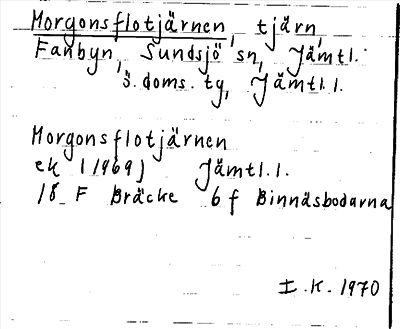 Morgonsflotjärnen, tjärn,
Fanbyn, Sundsjö sn, Jämtl.
s. doms. tg, Jämtl. l.
Morgonsflotjärnen
ek (1969) Jämtl. l.
18 F Bräcke 6 f Binnäsbodarna
I.K. 1970